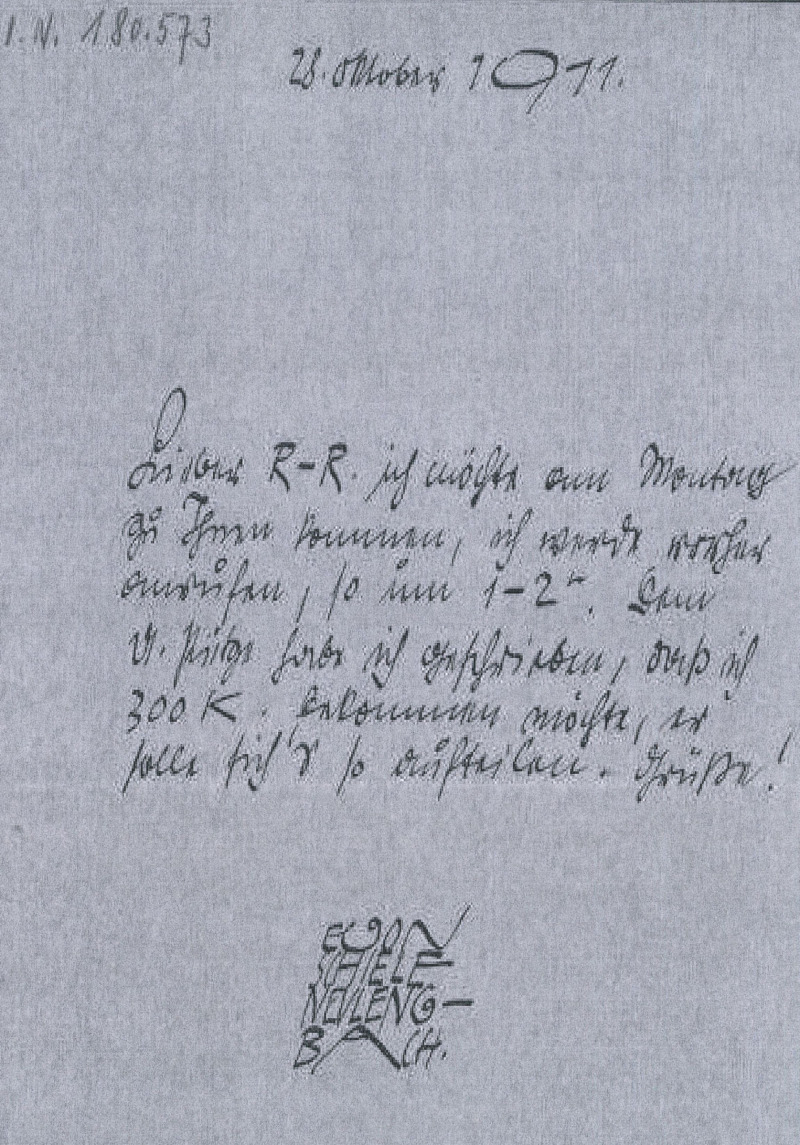 I.N. 180.573
28. Oktober 1911.
Lieber R-R. ich möchte am Montag
zu Ihnen kommen, ich werde vorher
anrufen, so um 1-2 h. Dem
habe ich geschrieben, daß ich
300 K. bekommen möchte, er
solle sich's so aufteilen. Grüße!
EGON
SCHIELE
NEULENG-
BACH.